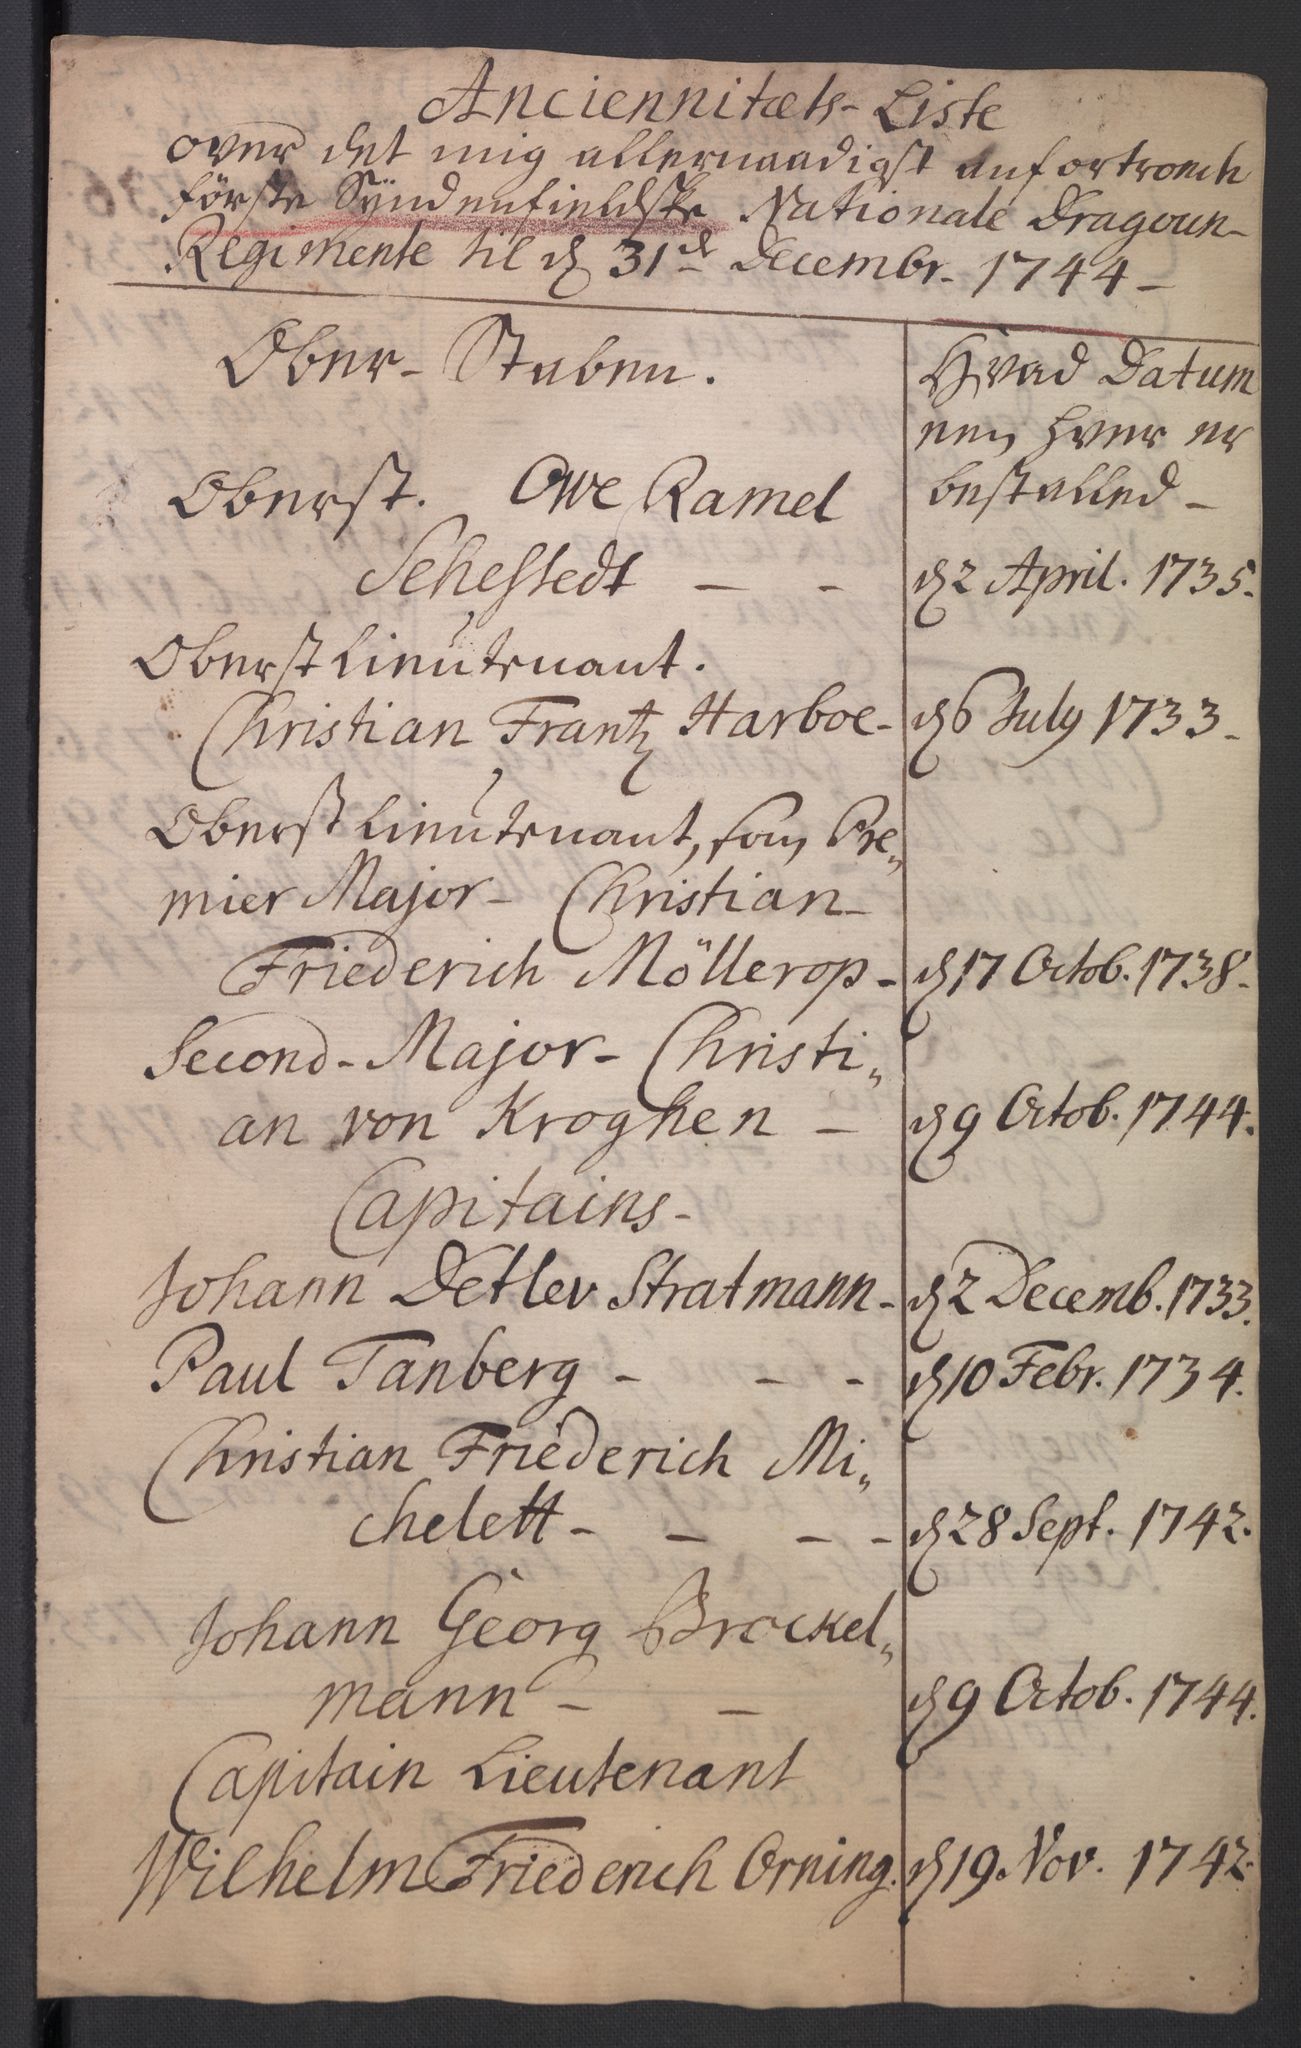 Anciennitæts-Liste
over det mig allernaadigst anfortroede
første Syndenfieldske Nationale Dragoun-
Regimente til d 31de Decembr. 1744-
Ober-Staben.
Hvad Datum
nen hver er
bestalled-
Oberst. Owe Ramel
Sehestedt - - d 2 April. 1735.
Oberstlieutenant.
Christian Frantz Harboe- d 6 July 1733-
Oberstlieutenant, som Pre„
mier Major- Christian-
Friederich Möllerop- d 17 Octob. 1738-
Second-Major- Christi„
an von Kroghen - d 9 Octob. 1744.
Capitains-
Johann Detlev Stratmann- d 2 Decemb. 1733.
Paul Tanberg - - - d 10 Febr. 1734.
Christian Friederich Mi„
chelett - - - - d 28 Sept. 1742.
Johann Georg Brockel„
mann - - d 9 Octob. 1744.
Capitain Lieutenant
Wilhelm Friederich Orning. d 19. Nov. 1742.